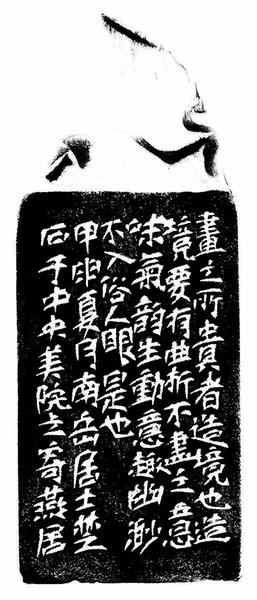 畫之所貴者造境也造
境要有曲折不盡之意
味氣韵生動意趣幽渺
不入俗人眼是也
甲申夏月南岳居士楚
石于中央美院之寄燕居